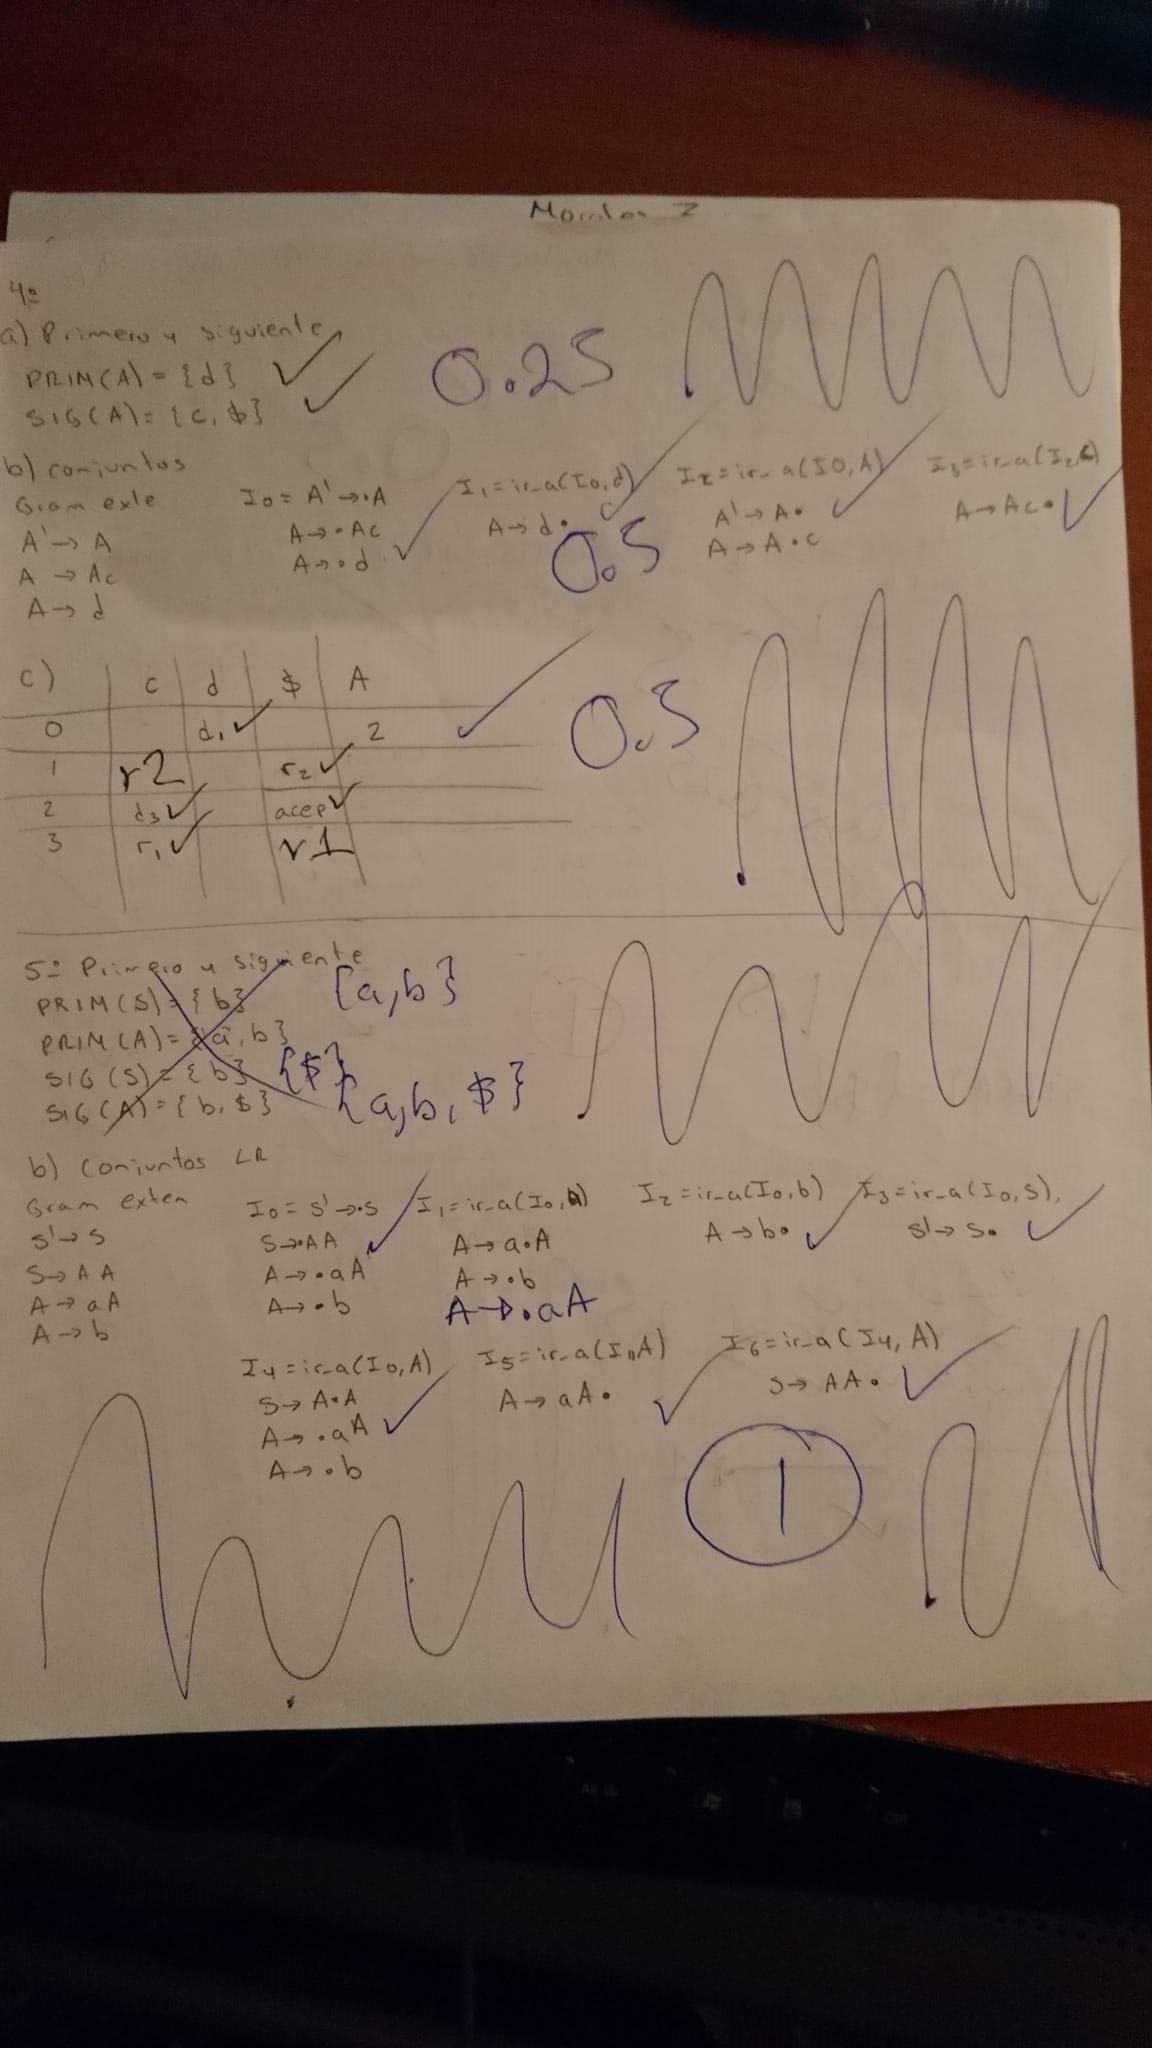 4º
a) Primero y siguiente
PRIM(A) = {d}
SIG(A) = {c, $}
0.25
b) conjuntos
Gram exte
A' → A
A → Ac
A → d
I0 = A' → •A
A → •Ac
A → •d
I1 = ir_a(I0, d)
A → d•
0.5
I2 = ir_a(I0, A)
A' → A•
A → A•c
I3 = ir_a(I2, c)
A → Ac•
c) c d $ A
0 d1 2
1 r2 r2
2 d3 acep
3 r1 r1
0.5
5º Primero y siguiente
PRIM(S) = {b} {a,b}
PRIM(A) = {a, b}
SIG(S) = {b} {$}
SIG(A) = {b, $} {a,b,$}
b) conjuntos LR
Gram exten
S' → S
S → AA
A → aA
A → b
I0 = S' → •S
S → •AA
A → •aA
A → •b
I1 = ir_a(I0, a)
A → a•A
A → •b
A → •aA
I2 = ir_a(I0, b)
A → b•
I3 = ir_a(I0, S),
S' → S•
I4 = ir_a(I0, A)
S → A•A
A → •aA
A → •b
I5 = ir_a(I1A)
A → aA•
I6 = ir_a(I4, A)
S → AA•
1